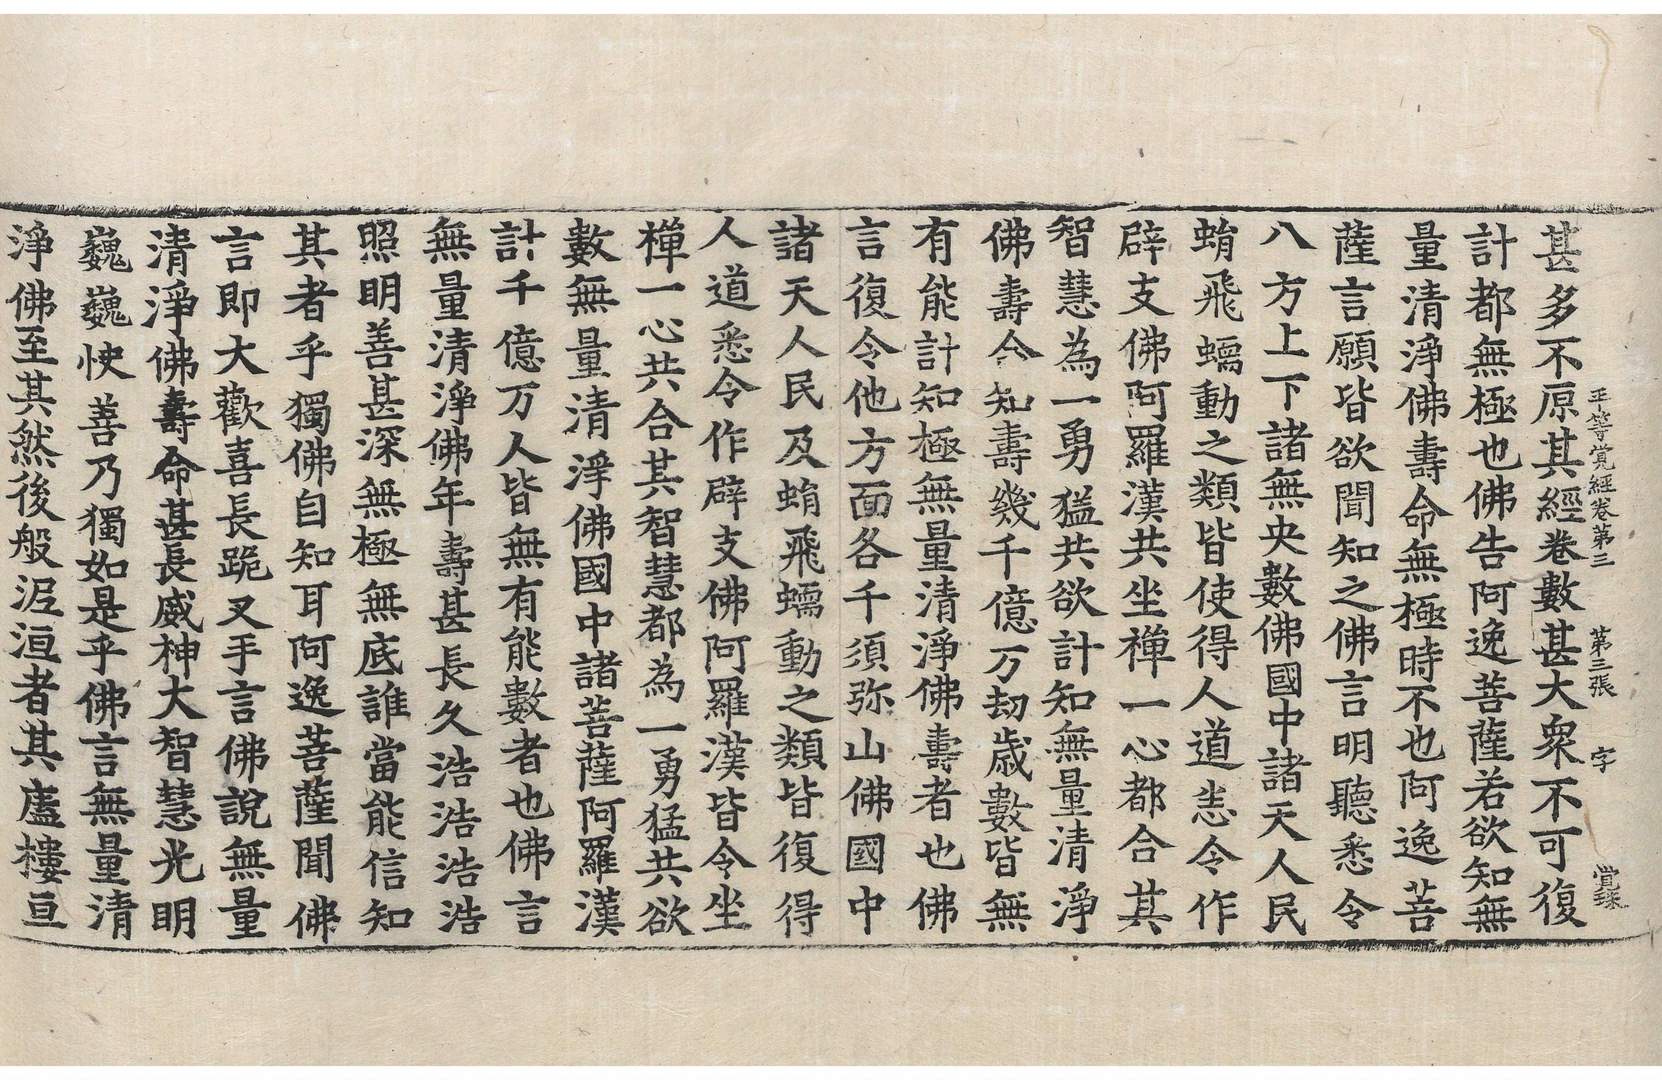 正等覺經卷第三 第三張 字 覺珠
甚多不原其經卷數甚大衆不可復
計都無極也佛告阿逸菩薩若欲知無
量清淨佛壽命無極時不也阿逸菩
薩言願皆欲聞知之佛言明聽悉令
八方上下諸無央數佛國中諸天人民
蜎飛蠕動之類皆使得人道悉令作
辟支佛阿羅漢共坐禪一心都合其
智慧為一勇猛共欲計知無量清淨
佛壽命知壽幾千億万劫歲數皆無
有能計知極無量清淨佛壽者也佛
言復令他方面各千須弥山佛國中
諸天人民及蜎飛蠕動之類皆復得
人道悉令作辟支佛阿羅漢皆令坐
禪一心共合其智慧都為一勇猛共欲
數無量清淨佛國中諸菩薩阿羅漢
計千億万人皆無有能數者也佛言
無量清淨佛年壽甚長久浩浩浩浩
照明善甚深無極無底誰當能信知
其者乎獨佛自知耳阿逸菩薩聞佛
言即大歡喜長跪叉手言佛說無量
清淨佛壽命甚長威神大智慧光明
巍巍快善乃獨如是乎佛言無量清
淨佛至其然後般泥洹者其廬樓亘